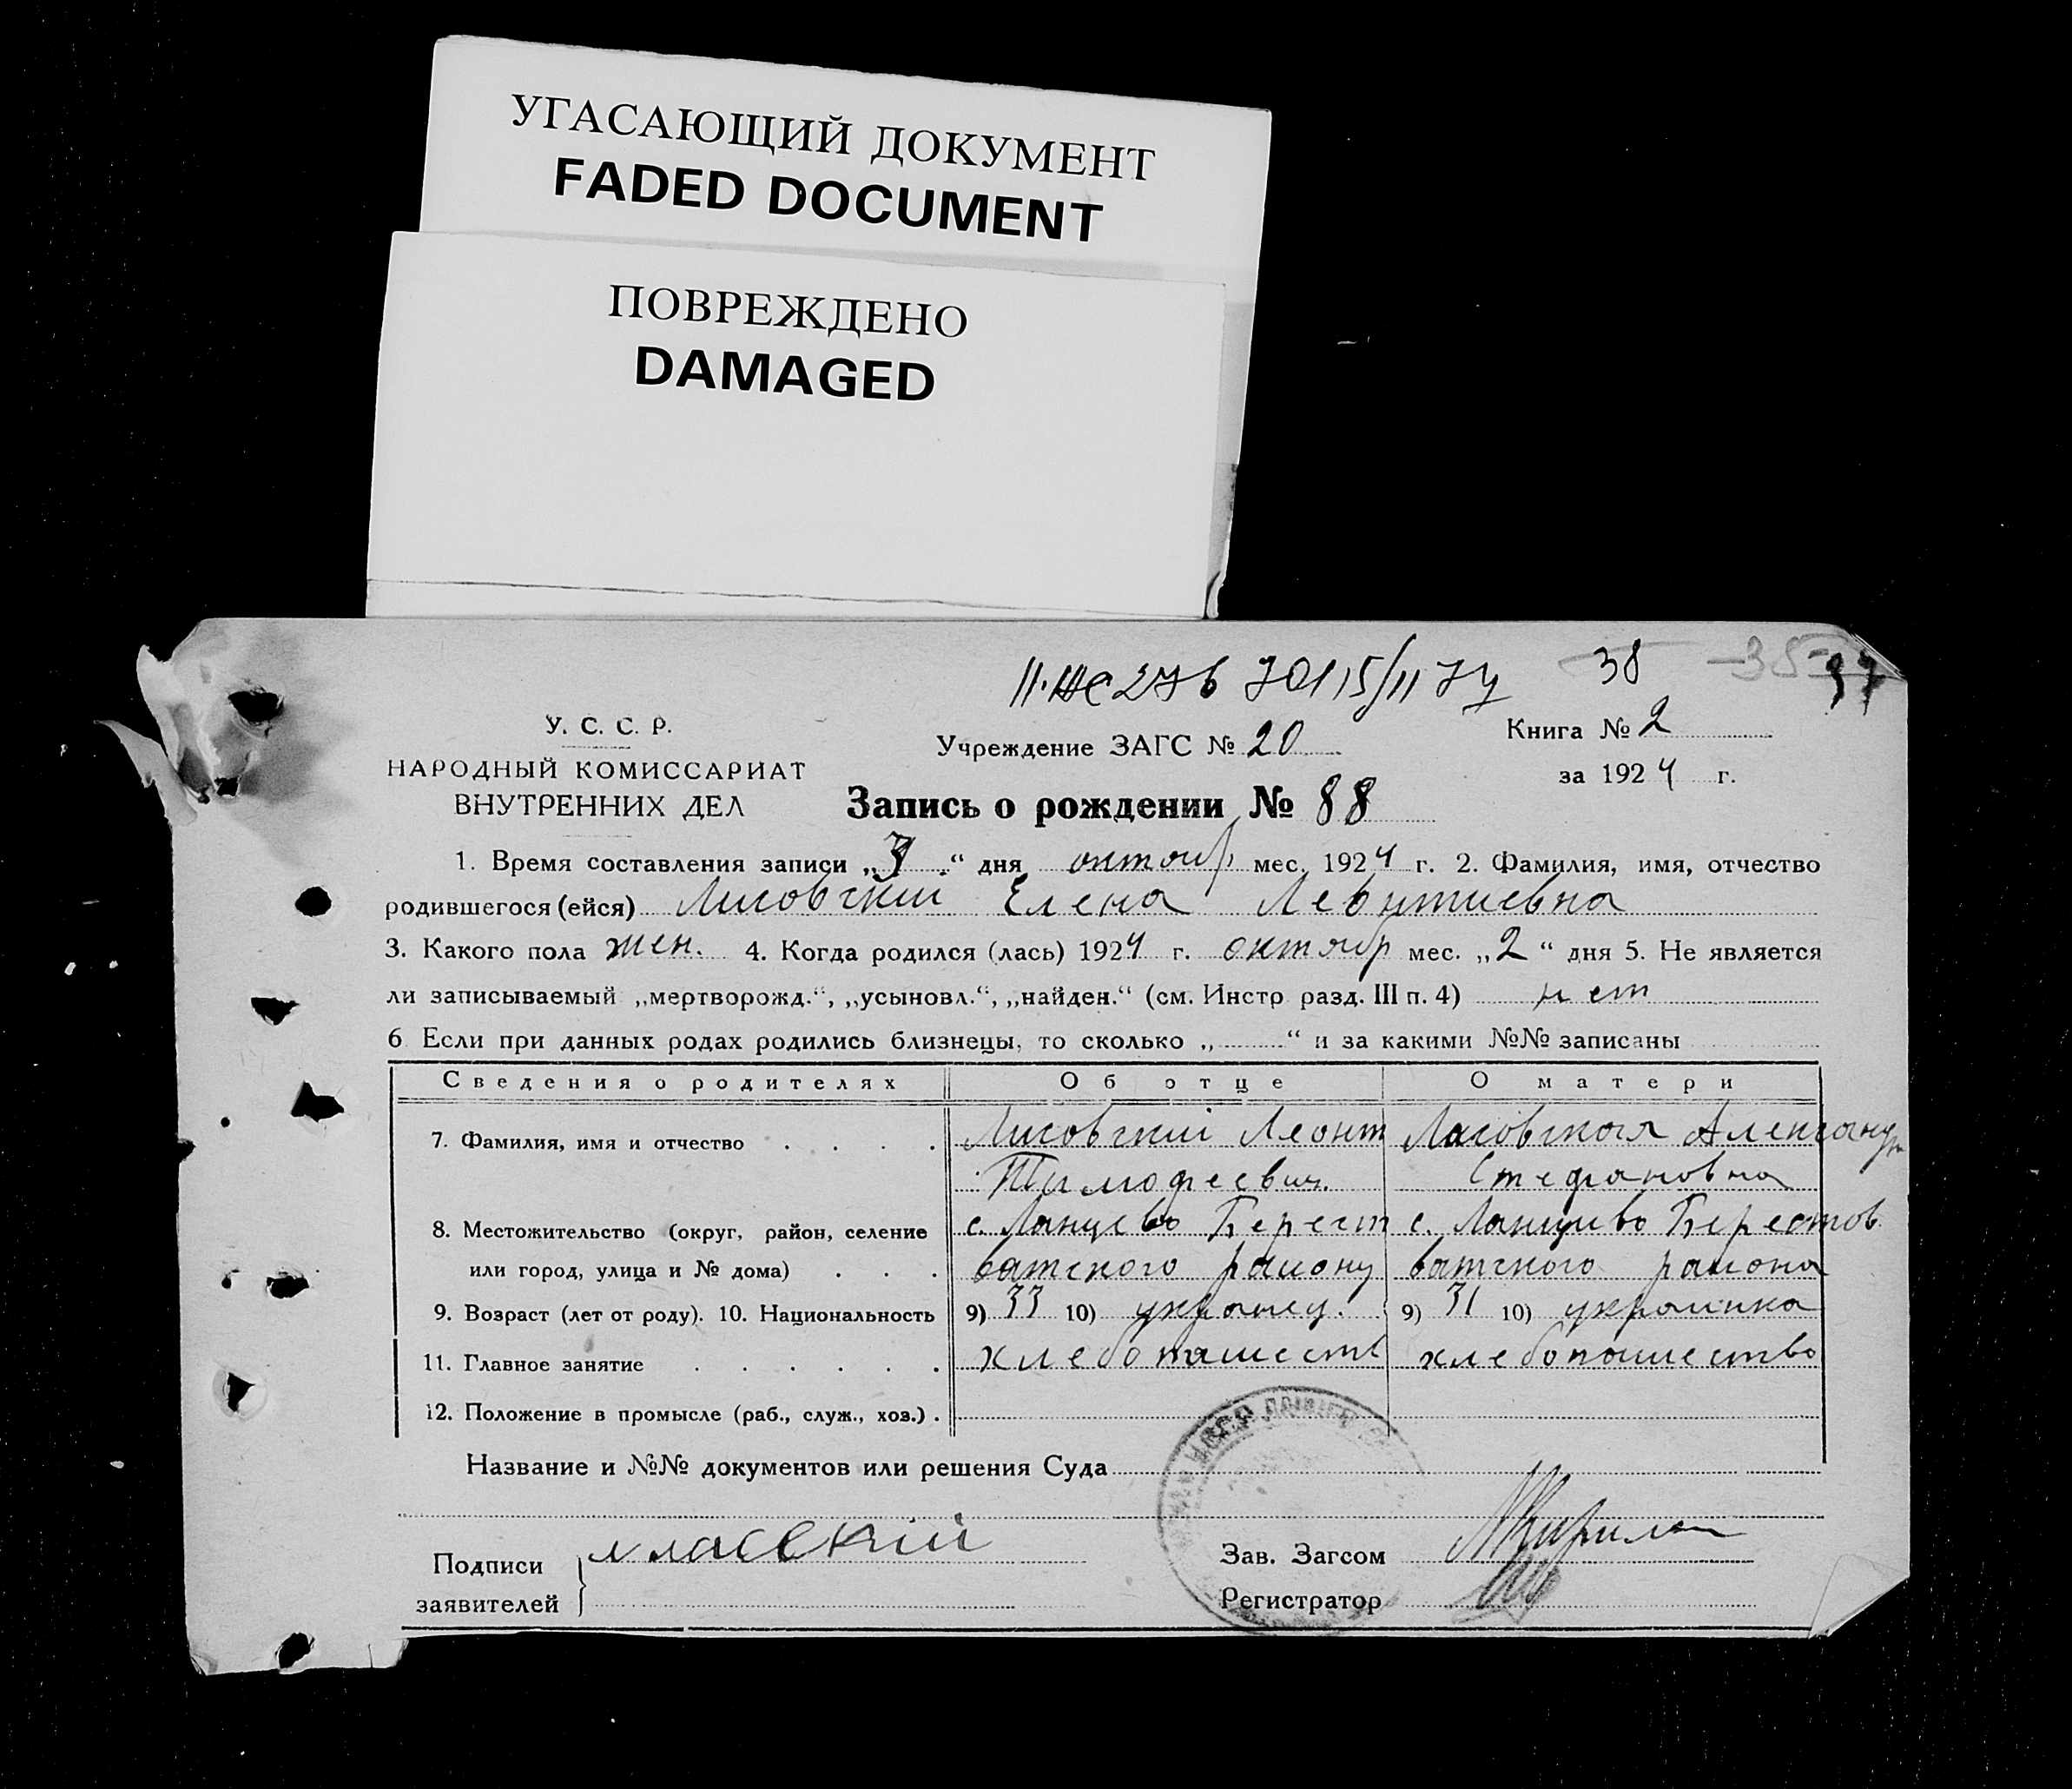 УГАСАЮЩИЙ ДОКУМЕНТ
FADED DOCUMENT
ПОВРЕЖДЕНО
DAMAGED
38 -35- 37
У. С. С. Р.
НАРОДНЫЙ КОМИССАРИАТ
ВНУТРЕННИХ ДЕЛ
Учреждение ЗАГС № 20
Книга № 2
за 1924 г.
Запись о рождении № 88
1. Время составления записи „3“ дня октябр мес. 1924 г. 2. Фамилия, имя, отчество
родившегося (ейся) Лисовский Елена Левнтиевна
3. Какого пола жен. 4. Когда родился (лась) 1924 г. октябр мес. „2“ дня 5. Не является
ли записываемый „мертворожд.“, „усыновл.“, „найден.“ (см. Инстр разд. III п. 4) нет
6 Если при данных родах родились близнецы, то сколько „ “ и за какими №№ записаны
Сведения о родителях Об отце О матери
7. Фамилия, имя и отчество Лисовский Леонт Лисовская Александр
Тимофеевич. Стефановна
8. Местожительство (округ, район, селение с. Ланцево Берест с. Ланцево Берестов
или город, улица и № дома) ватского району ватского района
9. Возраст (лет от роду). 10. Национальность 9) 33 10) украинец. 9) 31 10) украинка
11. Главное занятие хлебопашеств хлебопашество
12. Положение в промысле (раб., служ., хоз.)
Название и №№ документов или решения Суда
Подписи
заявителей
Зав. Загсом
Регистратор